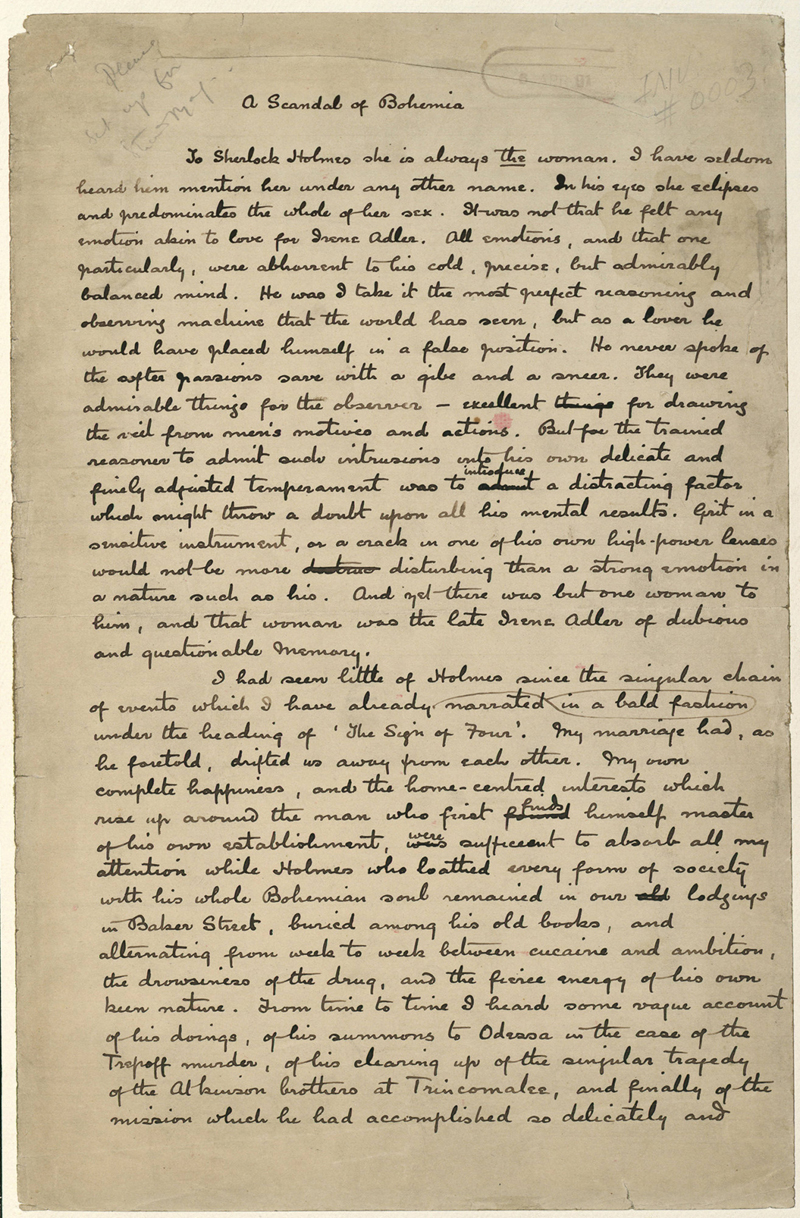 Please
set up for
INV
# 0003
A Scandal of Bohemia
To Sherlock Holmes she is always the woman. I have seldom
heard him mention her under any other name. In his eyes she eclipses
and predominates the whole of her sex. It was not that he felt any
emotion akin to love for Irene Adler. All emotions, and that one
particularly, were abhorrent to his cold, precise, but admirably
balanced mind. He was I take it the most perfect reasoning and
observing machine that the world has seen, but as a lover he
would have placed himself in a false position. He never spoke of
the softer passions save with a gibe and a sneer. They were
admirable things for the observer – excellent things for drawing
the veil from men's motives and actions. But for the trained
reasoner to admit such intrusions into his own delicate and
introduce
finely adjusted temperament was to admit a distracting factor
which might throw a doubt upon all his mental results. Grit in a
sensitive instrument, or a crack in one of his own high-power lenses
would not be more disturbing than a strong emotion in
a nature such as his. And yet there was but one woman to
him, and that woman was the late Irene Adler of dubious
and questionable Memory.
I had seen little of Holmes since the singular chain
of events which I have already narrated in a bald fashion
under the heading of 'The Sign of Four'. My marriage had, as
he foretold, drifted us away from each other. My own
complete happiness, and the home-centred interests which
finds
rise up around the man who first found himself master
were
of his own establishment, was sufficient to absorb all my
attention while Holmes who loathed every form of society
with his whole Bohemian soul remained in our old lodgings
in Baker Street, buried among his old books, and
alternating from week to week between cucaine and ambition,
the drowsiness of the drug, and the fierce energy of his own
keen nature. From time to time I heard some vague account
of his doings, of his summons to Odessa in the case of the
Trepoff murder, of his clearing up of the singular tragedy
of the Atkinson brothers at Trincomalee, and finally of the
mission which he had accomplished so delicately and